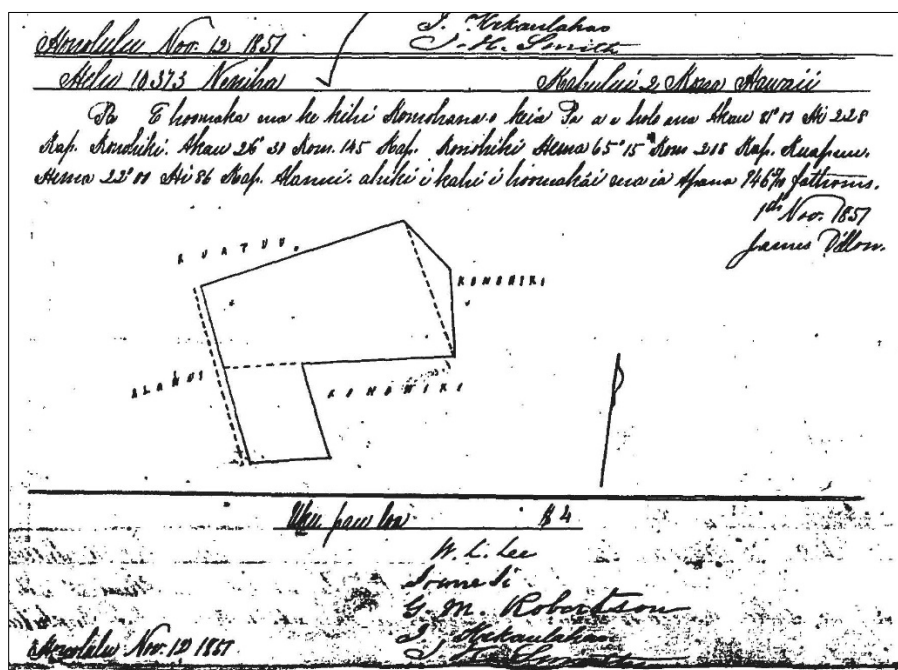 J. Kekaulahao
Honolulu Nov. 12 1851 J. H. Smith
Helu 10,373 Neniha Kahului 2 Kona Hawaii
Pa E hoomaka ma ke kihi Komohana o keia Pa a e holo ana Akau 81°00 Hi 228
Kap. Konohiki. Akau 26°30 Kom. 145 Kap. Konohiki Hema 65°15 Kom 218 Kap. Kuapuu.
Hema 22°00 Hi 86 Kap. Alanui. ahiki i kahi i hoomakai ana ia Apana fathoms.
1st Nov. 1851
James Dillon.
KUAPUU.
KONOHIKI
ALANUI
KONOHIKI
Uku pau loa $4
W. L. Lee
Ioane Ii
G. M. Robertson
J. Kekaulahao
Honolulu Nov. 12 1851 J. H. Smith